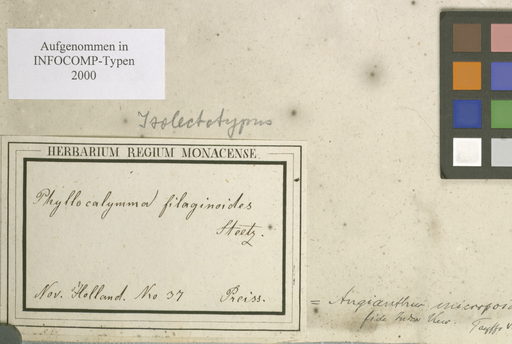 Aufgenommen in
INFOCOMP-Typen
2000
Isolectotypus
HERBARIUM REGIUM MONACENSE.
Phyllocalymma filaginoides
Steetz.
Nov. Holland. Nro 37 Preiss.
= Angianthus
fide